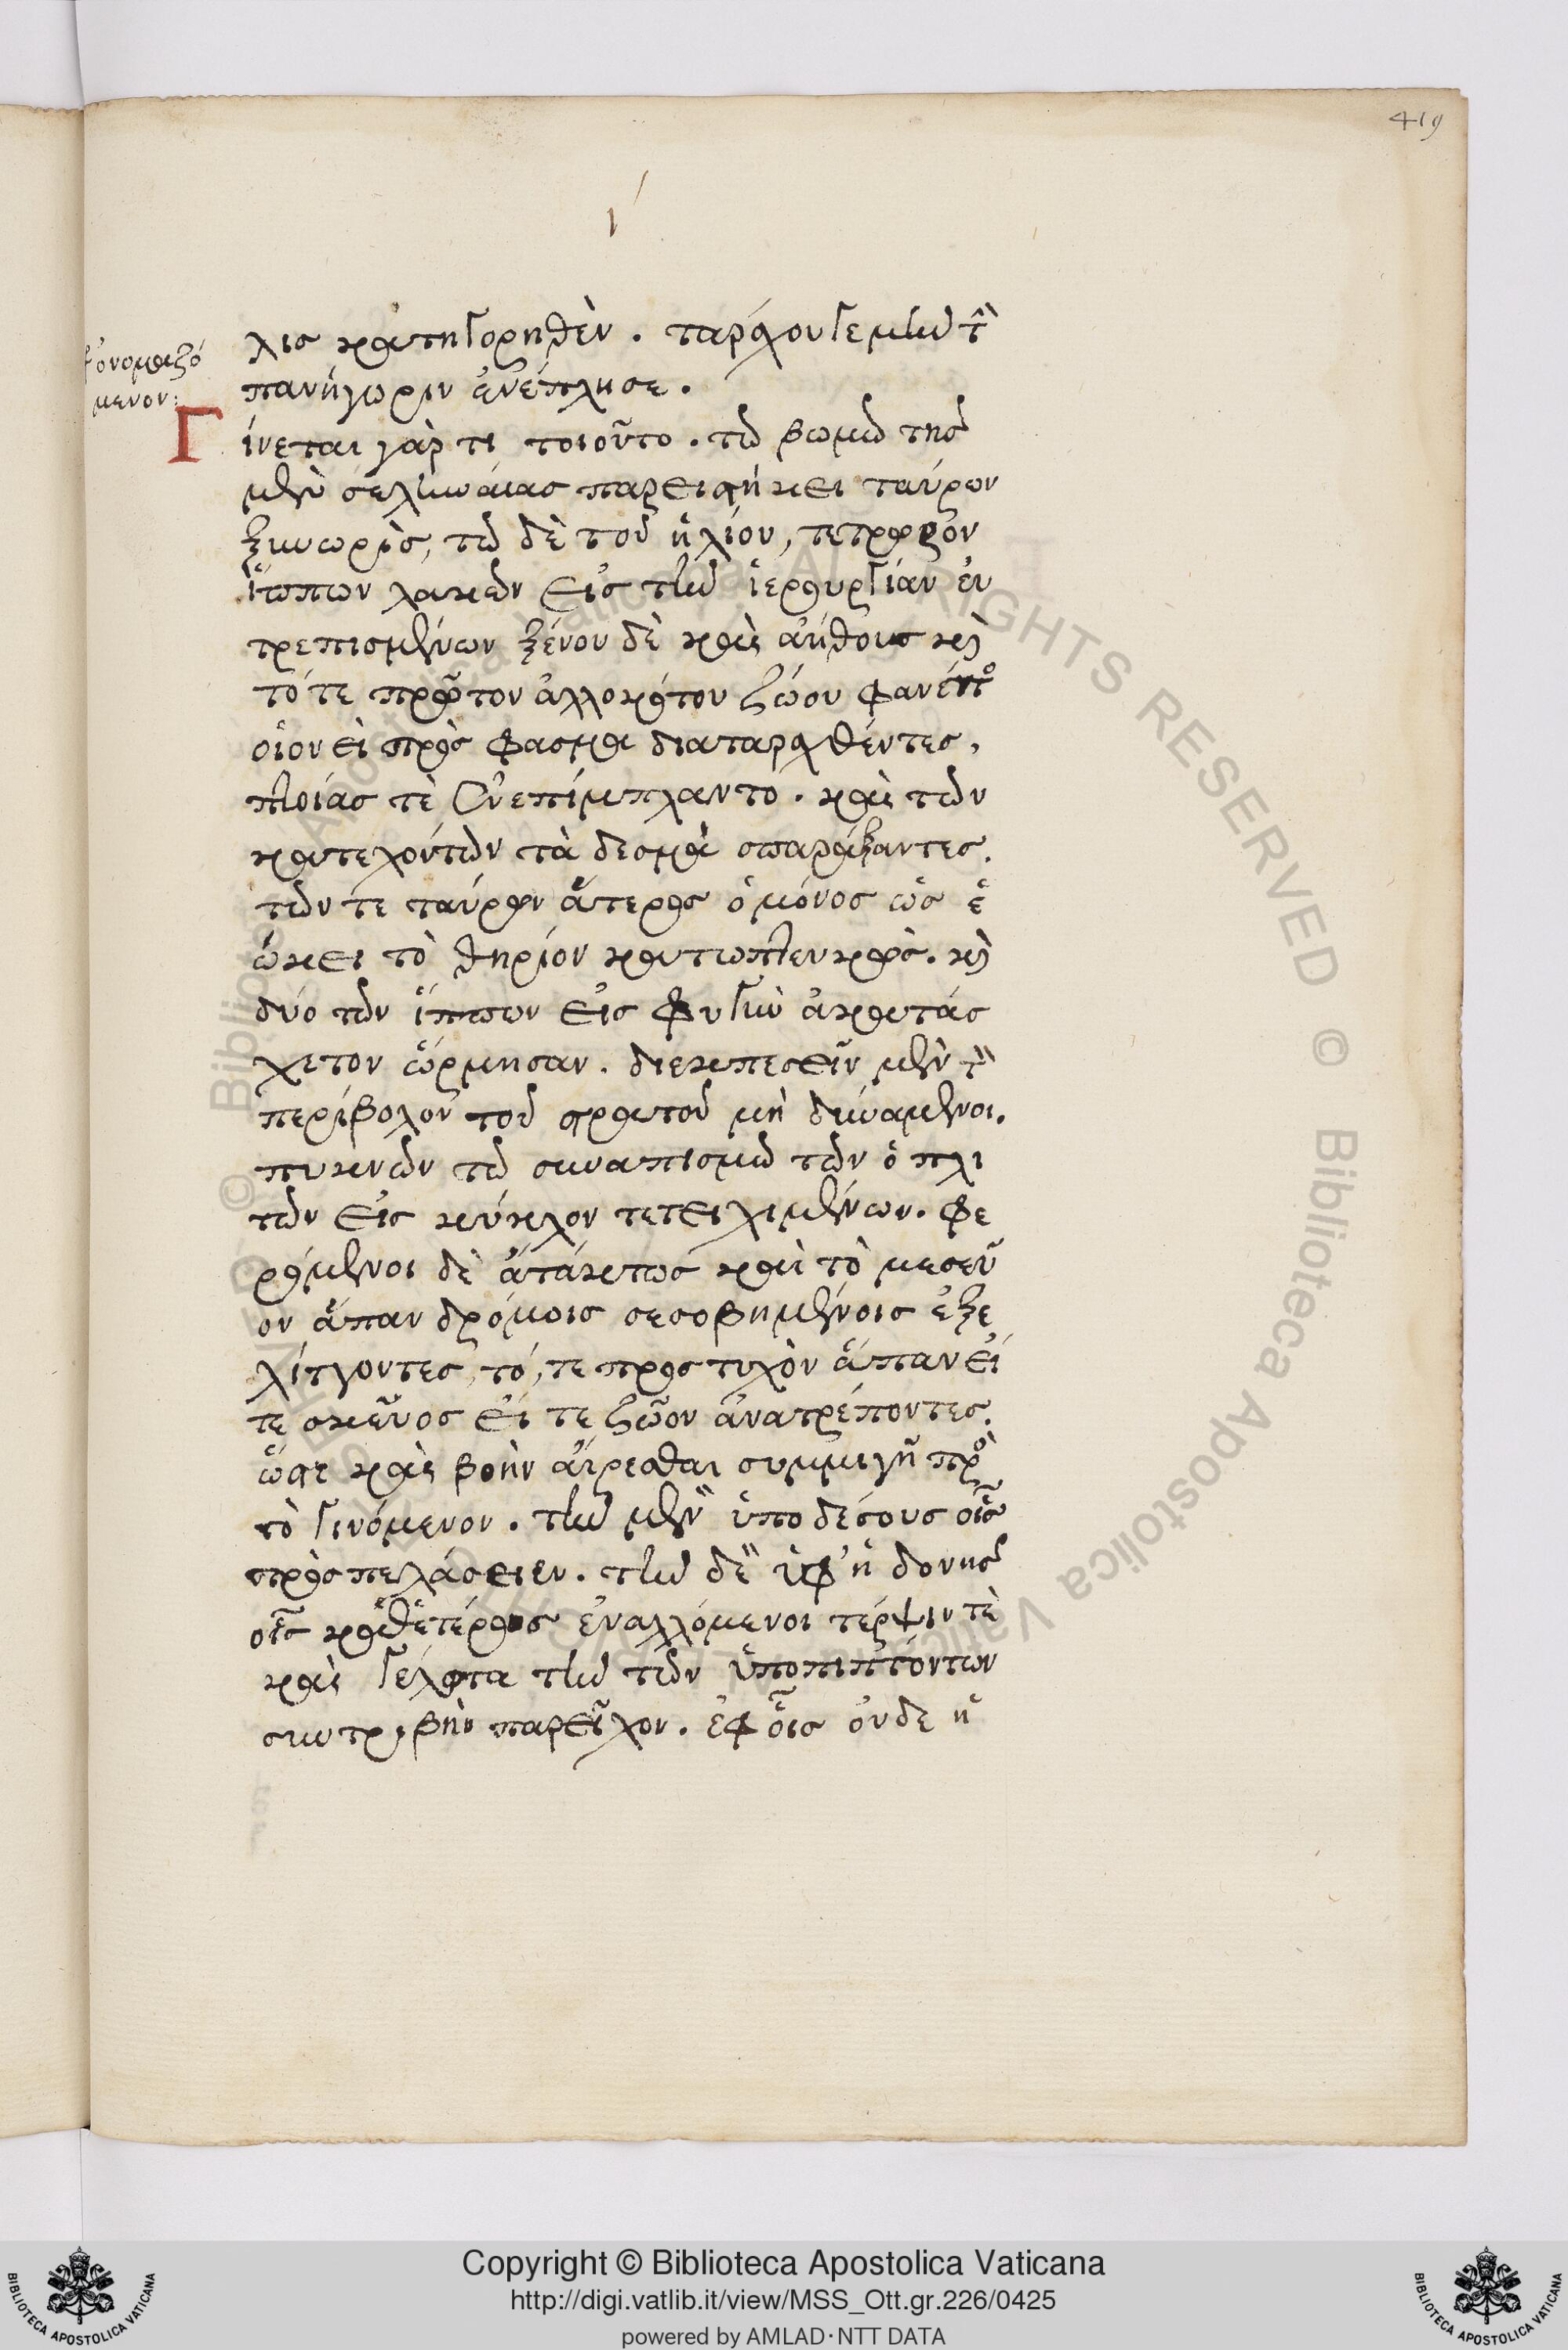 419
ὀνομαζό
μενον:
λις κατηγορηθὲν. ταράχου γε μὴν τὴν
πανήγυριν ἐνέπλησε.
Γίνεται γάρ τι τοιοῦτο. τῷ βωμῷ τῆς
μὲν σεληναίας παρειστήκει ταύρων
ξυνωρὶς, τῷ δὲ τοῦ ἡλίου, τέτρωρον
ἵππων λευκῶν εἰς τὴν ἱερουργίαν εὐ
τρεπισμένων ξένου δὲ καὶ ἀήθους καὶ
τότε πρῶτον ἀλλοκότου ζώου φανέντος
οἱονεὶ πρὸς φάσμα διαταραχθέντες,
πτοίας τὲ ἐνεπίμπλαντο. καὶ τῶν
κατεχόντων τὰ δεσμὰ σπαράξαντες.
τῶν τε ταύρων ἅτερος ὁ μόνος ὡς ἐ
ώκει τὸ θηρίον κατωπτευκὼς. καὶ
δύο τῶν ἵππων εἰς φυγὴν ἀκατάσ
χετον ὥρμησαν. διεκπεσεῖν μὲν τὸν
περίβολον τοῦ στρατοῦ μὴ δυνάμενοι.
πυκνῶν τῷ συναπισμῷ τῶν ὁπλι
τῶν εἰς κύκλον τετειχιμένων. φε
ρόμενοι δὲ ἀτάκτως καὶ τὸ μεσεῦ
ον ἅπαν δρόμοις σεσοβημένοις ἐξε
λίττοντες, τό, τε προστυχὸν ἅπαν εἴ
τε σκεῦος εἴ τε ζῶον ἀνατρέποντες.
ὥστε καὶ βοὴν αἴρεσθαι συμμιγῆ πρὸς
τὸ γινόμενον. τὴν μὲν ὑπο δέους οἷς
προσπελάσειεν. τὴν δὲ ὑφ' ἡδονῆς
οἷς καθ' ἑτέρους ἐναλλόμενοι τέρψιν τὲ
καὶ γέλωτα τὴν τῶν ὑποπιπτόντων
συντριβὴν παρεῖχον. ἐφ' οἷς οὐδε ἡ
Copyright © Biblioteca Apostolica Vaticana
http://digi.vatlib.it/view/MSS_Ott.gr.226/0425
powered by AMLAD·NTT DATA